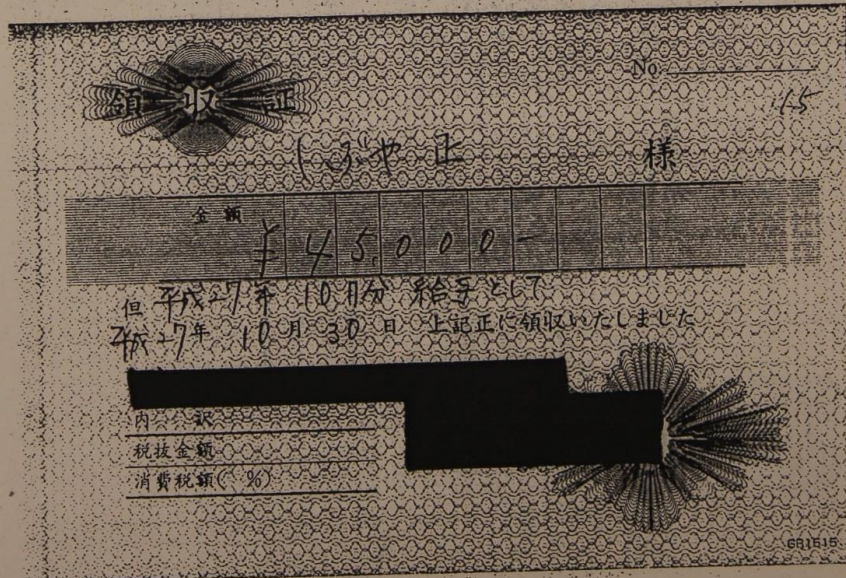 No.
15
領収証
しぶや 正 様
金額 ¥45,000-
但 平成27年 10月分 給与として
平成27年 10月 30日 上記正に領収いたしました
内訳
税抜金額
消費税額( %)
GR1515